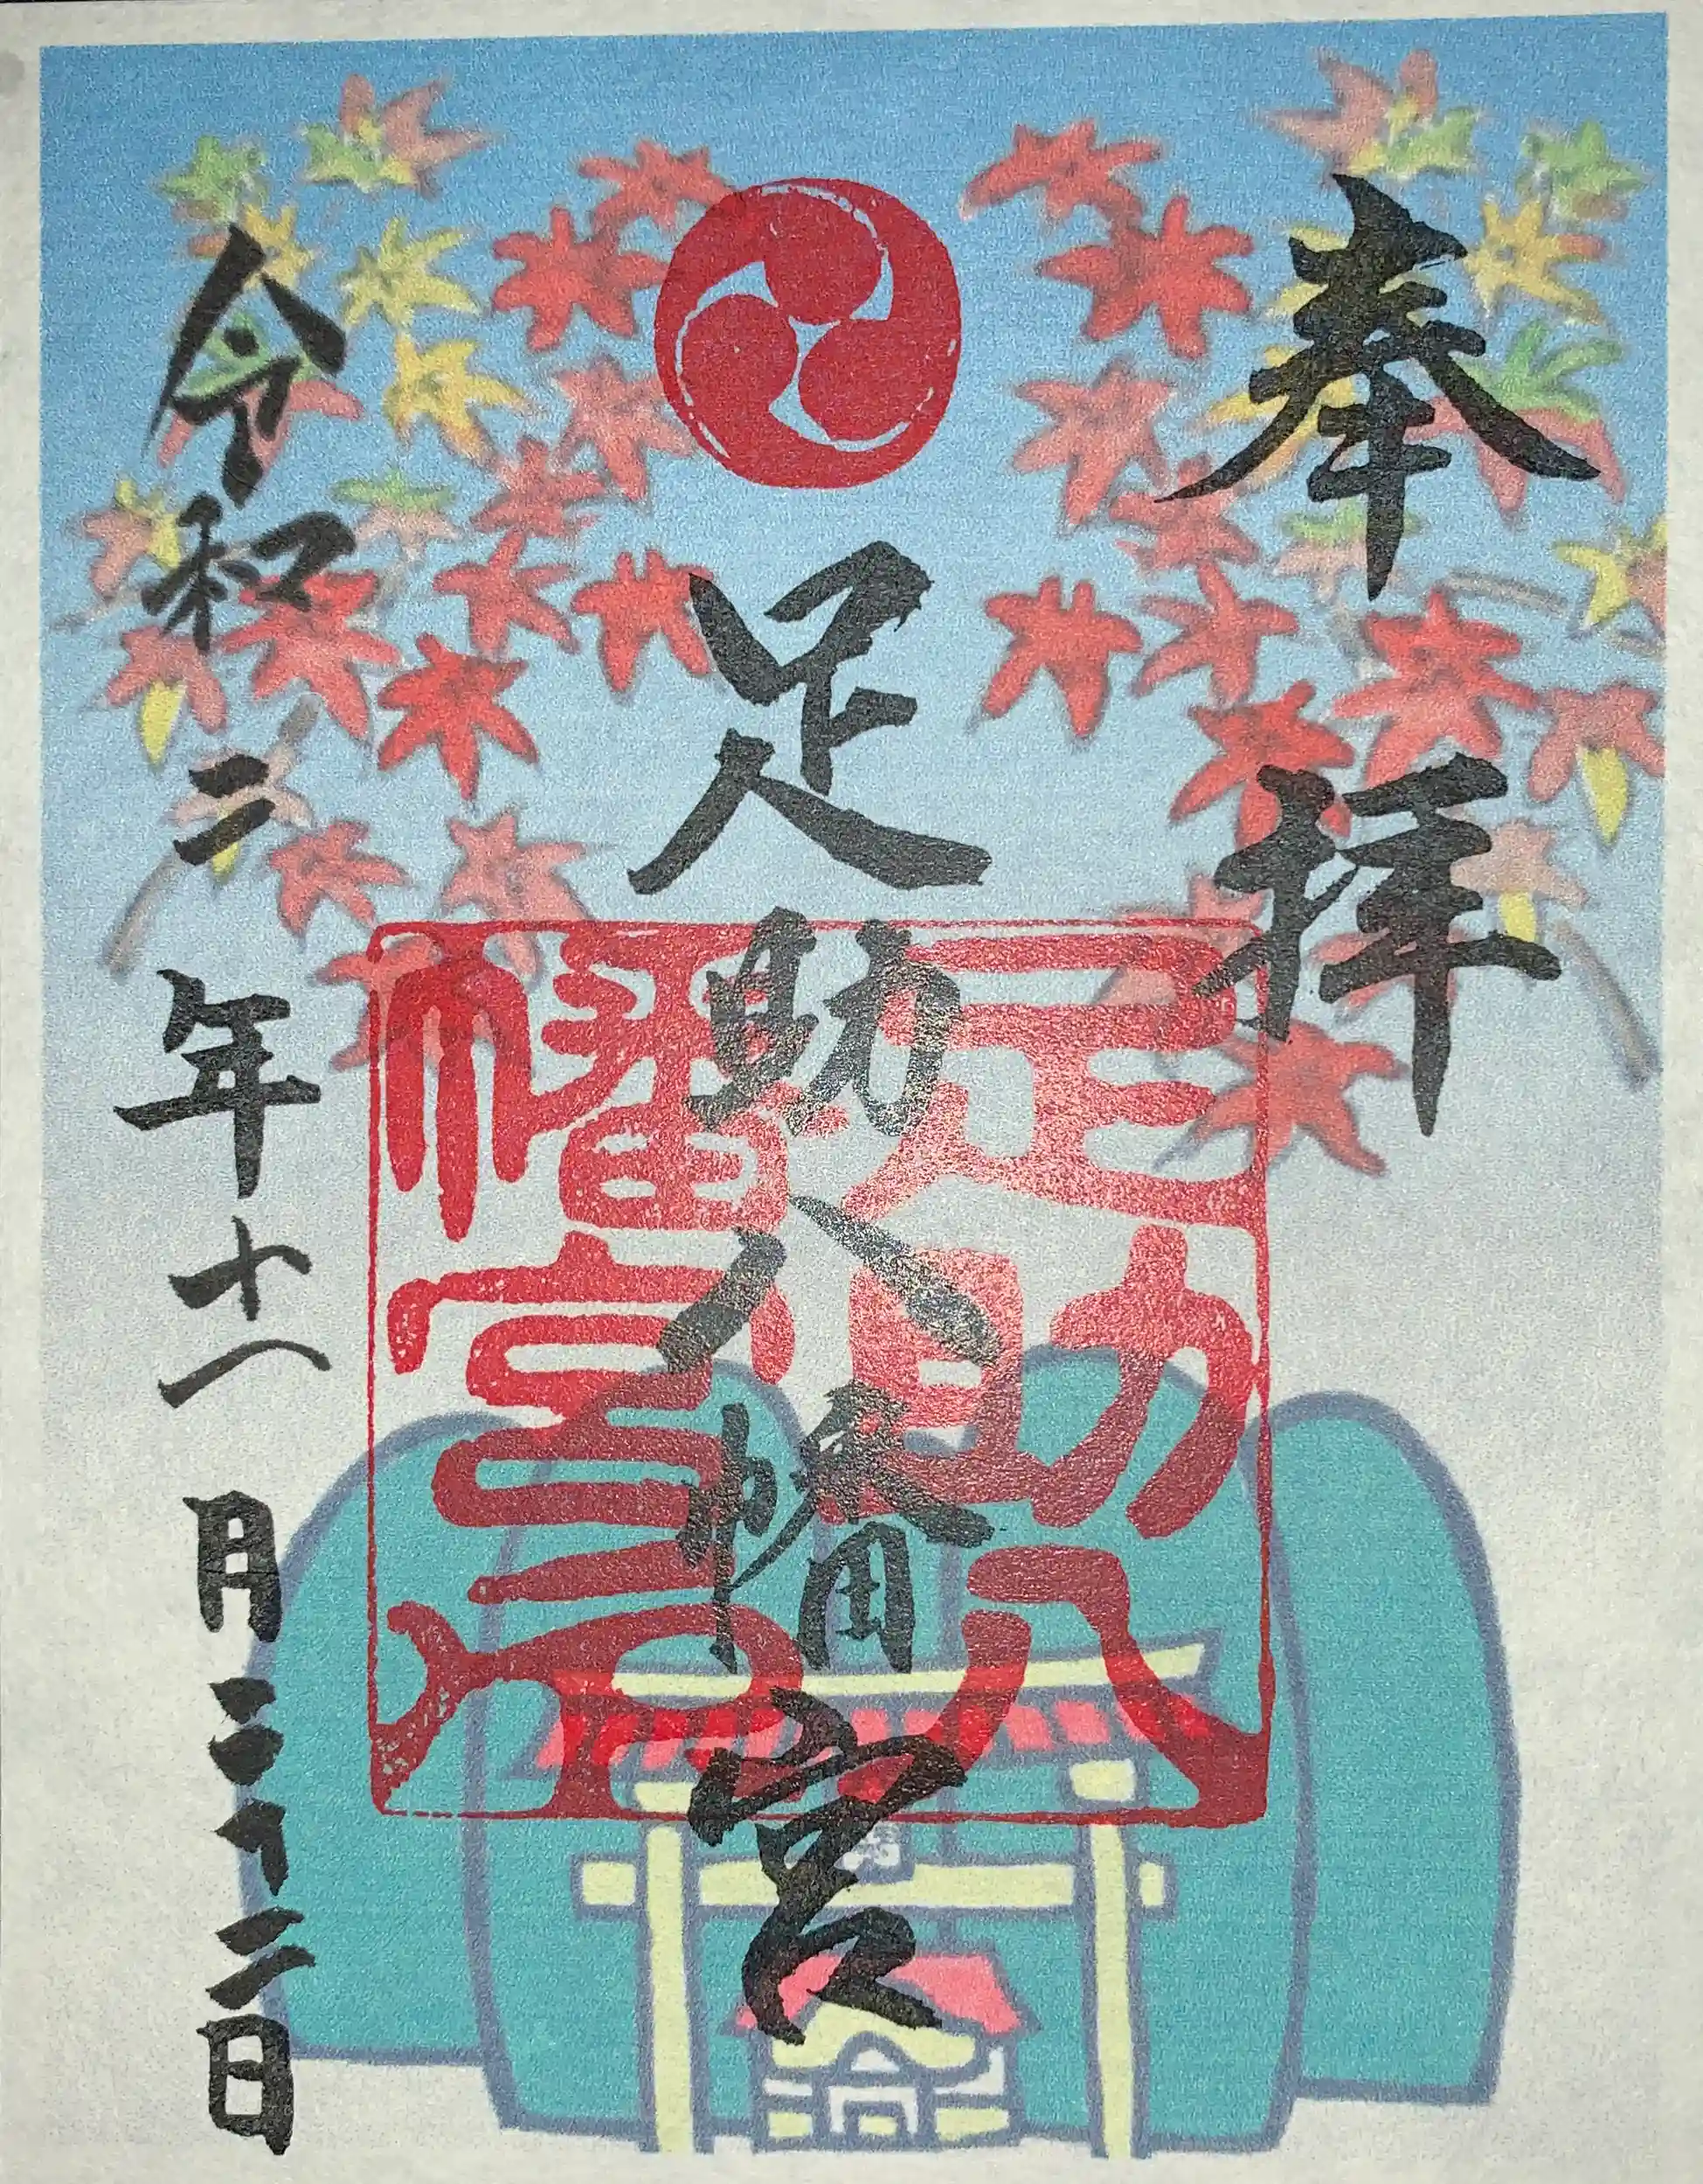 奉拝
足助八幡宮
足助八
幡宮印
令和二年十一月二十二日